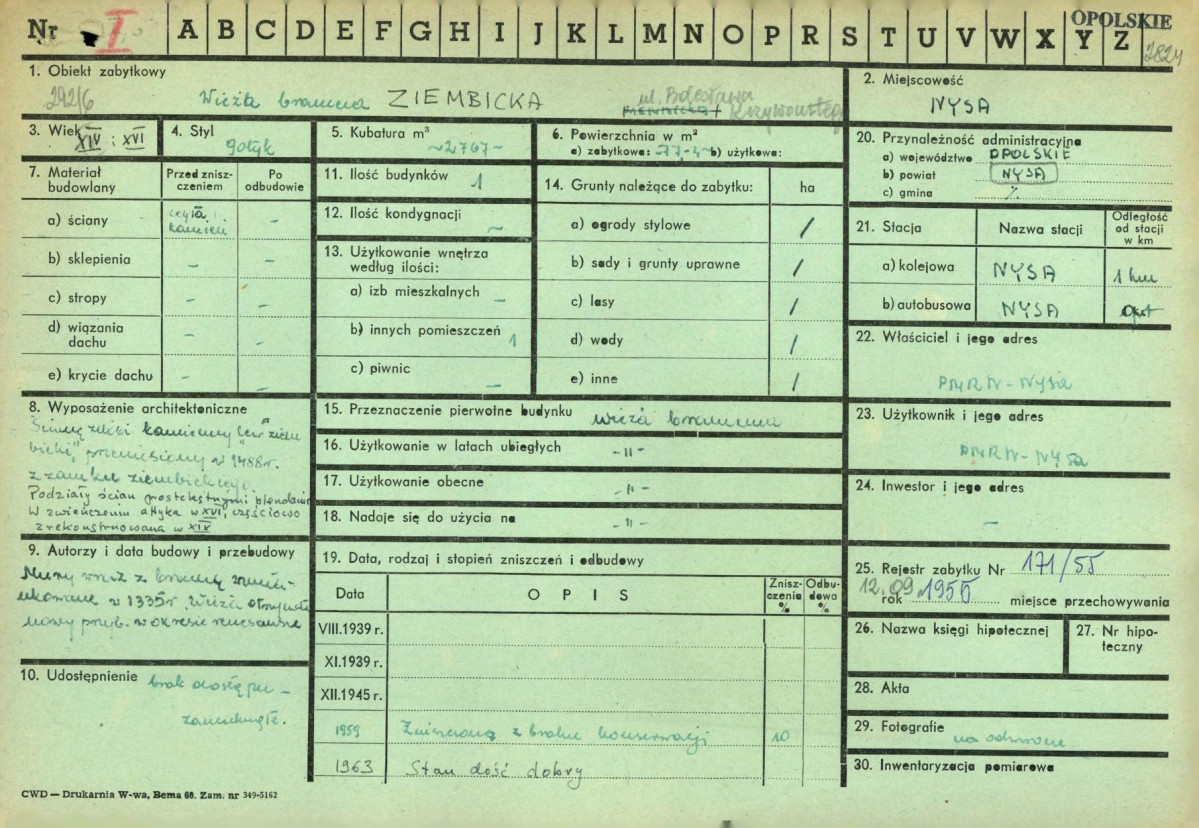 Nr I A B C D E F G H I J K L M N O P R S T U V W X Y Z
OPOLSKIE
7824
1. Obiekt zabytkowy
292/6 Wieża bramna ZIEMBICKA ul. Bolesława Krzywoustego
2. Miejscowość
NYSA
3. Wiek XIV i XVI
4. Styl
gotyk
5. Kubatura m³
~2767~
6. Powierzchnia w m²
a) zabytkowa: b) użytkowa:
20. Przynależność administracyjna
a) województwo OPOLSKIE
b) powiat NYSA
c) gmina
7. Materiał budowlany
Przed znisz-
czeniem
Po
odbudowie
a) ściany cegła i –
kamień
b) sklepienia – –
c) stropy – –
d) wiązania
dachu – –
e) krycie dachu – –
11. Ilość budynków 1
12. Ilość kondygnacji ~
13. Użytkowanie wnętrza
według ilości:
a) izb mieszkalnych –
b) innych pomieszczeń 1
c) piwnic –
14. Grunty należące do zabytku: ha
a) ogrody stylowe /
b) sady i grunty uprawne /
c) lasy /
d) wody /
e) inne /
21. Stacja Nazwa stacji Odległość
od stacji
w km
a) kolejowa NYSA 1 km
b) autobusowa NYSA
22. Właściciel i jego adres
PMRN – Nysa
23. Użytkownik i jego adres
PMRN – NYSA
24. Inwestor i jego adres
–
8. Wyposażenie architektoniczne
Ścianę zdobi kamienny lew "ziem
bicki", przeniesiony w 1488 r.
z zamku ziembickiego.
Podziały ścian prostokątnymi blendami
W zwieńczeniu attyka w XVI, częściowo
zrekonstruowana w XIX
15. Przeznaczenie pierwotne budynku wieża bramna
16. Użytkowanie w latach ubiegłych –"–
17. Użytkowanie obecne –"–
18. Nadaje się do użycia na –"–
9. Autorzy i data budowy i przebudowy
Mury wraz z bramą
w 1335 r. Wieża otrzymała
nowy w okresie renesansu
10. Udostępnienie brak dostępu –
zamknięte.
19. Data, rodzaj i stopień zniszczeń i odbudowy
Data OPIS Znisz-
czenia
% Odbu-
dowa
%
VIII.1939 r.
XI.1939 r.
XII.1945 r.
1959 Zniszczona z braku konserwacji 10
1963 Stan dość dobry
25. Rejestr zabytku Nr 171/55
12.09.1955
rok miejsce przechowywania
26. Nazwa księgi hipotecznej
27. Nr hipo-
teczny
28. Akta
29. Fotografie
na odwrocie
30. Inwentaryzacja pomiarowa
CWD — Drukarnia W-wa, Bema 60. Zam. nr 349-5162